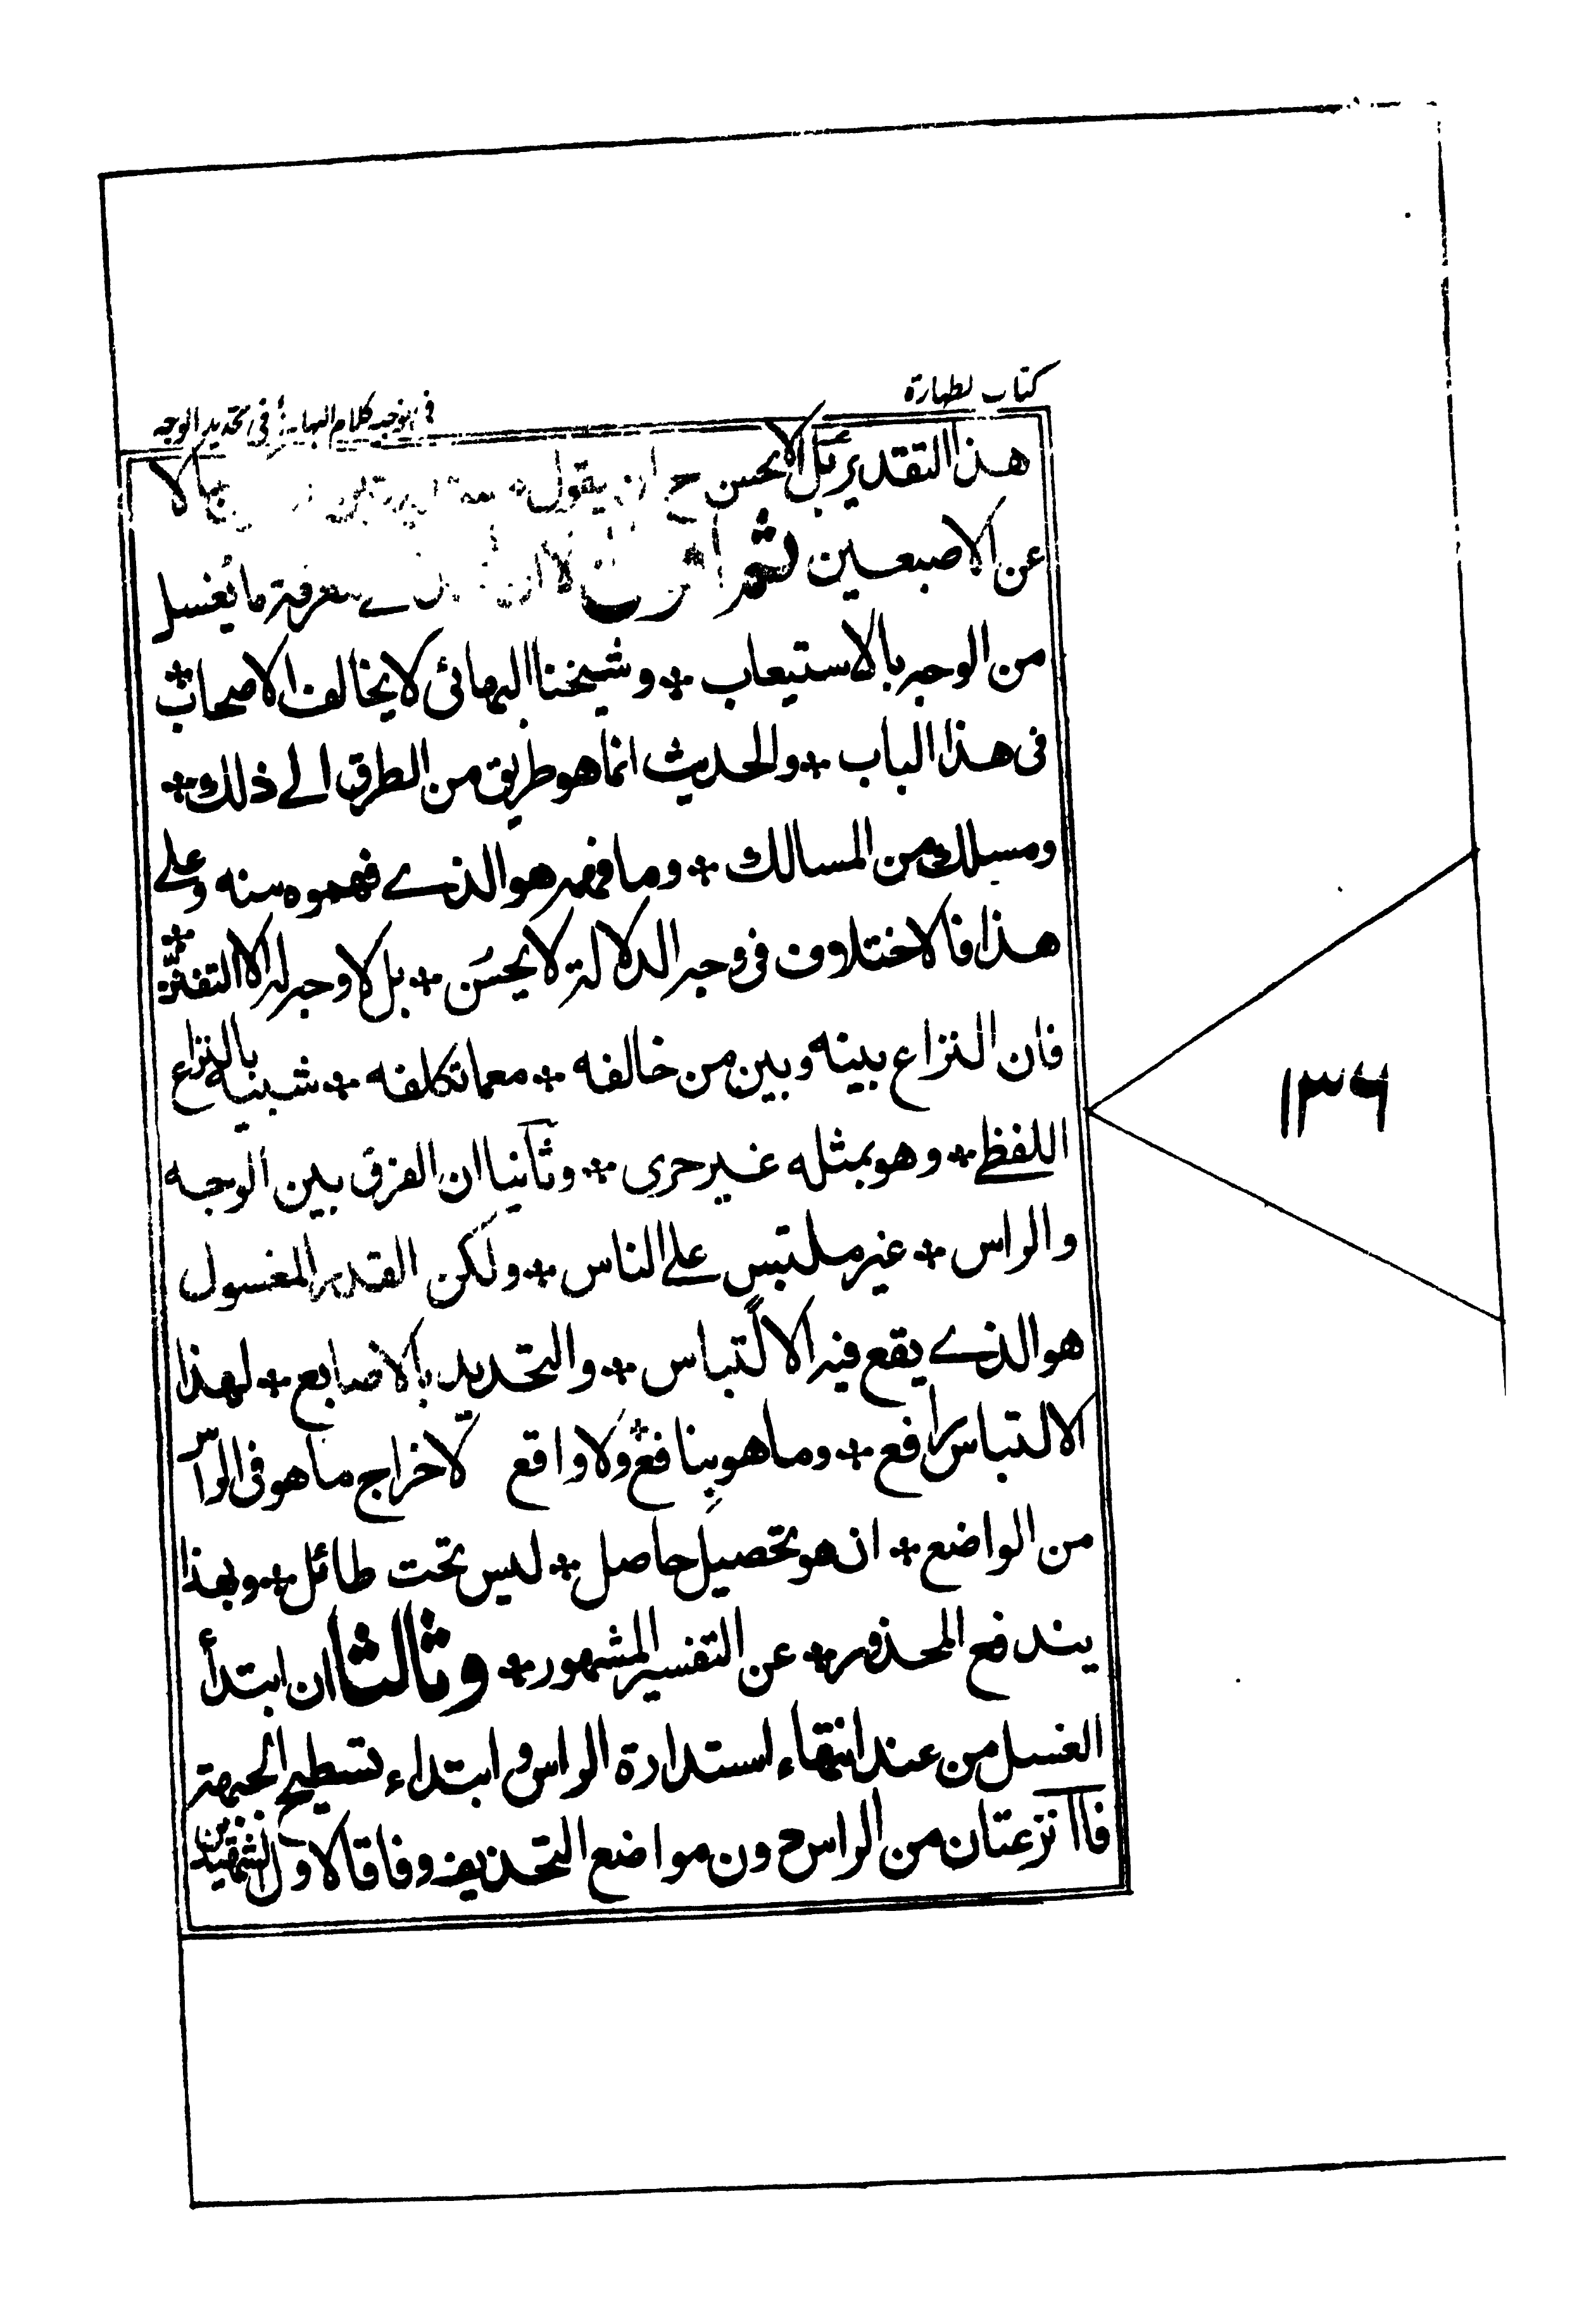 كتاب لطهارة
فى توجيه كلام البهائى فى تحديد الوجه
هذا التقدير بل الاحسن ح ان يقول
عن الاصبعين ثم معرفة ما يُغسل
من الوجه بالاستيعاب * وشيخنا البهائى لا يخالف الاصحاب *
فى هذا الباب * والحديث انما هو طريق من الطرق الے ذلك *
ومسلك من المسالك * وما فهمه هو الذے فهموه منه وعلے
هذا فالاختلاف فى وجه الدلالة لا يحسُن * بل لا وجه له الا التفنّن *
فان النزاع بينه وبين من خالفه * مع ما تكلفه * شبيه بالنزاع
اللفظے * وهو بمثله غير حرى * وثانيا ان الفرق بين الوجه
والراس * غير ملتبس علے الناس * ولكن القدر المغسول
هو الذے يقع فيه الالتباس * والتحديد بالاصابع * لهذا
الالتباس رافع * وما هو بنافع ولا واقع لاخراج ما هو فى الراس
من الواضع * ان هو تحصيل حاصل * ليس تحت طائل * وبهذا
يندفع المحذور * عن التفسير المشهور * وثالثا ان ابتدأ
الغسل من عند انتهاء استدارة الراس و ابتداء تسطيح الجبهة
فالنزعتان من الراس دون مواضع التحذيف وفاقا لاول الشهيدين
۱۳۶